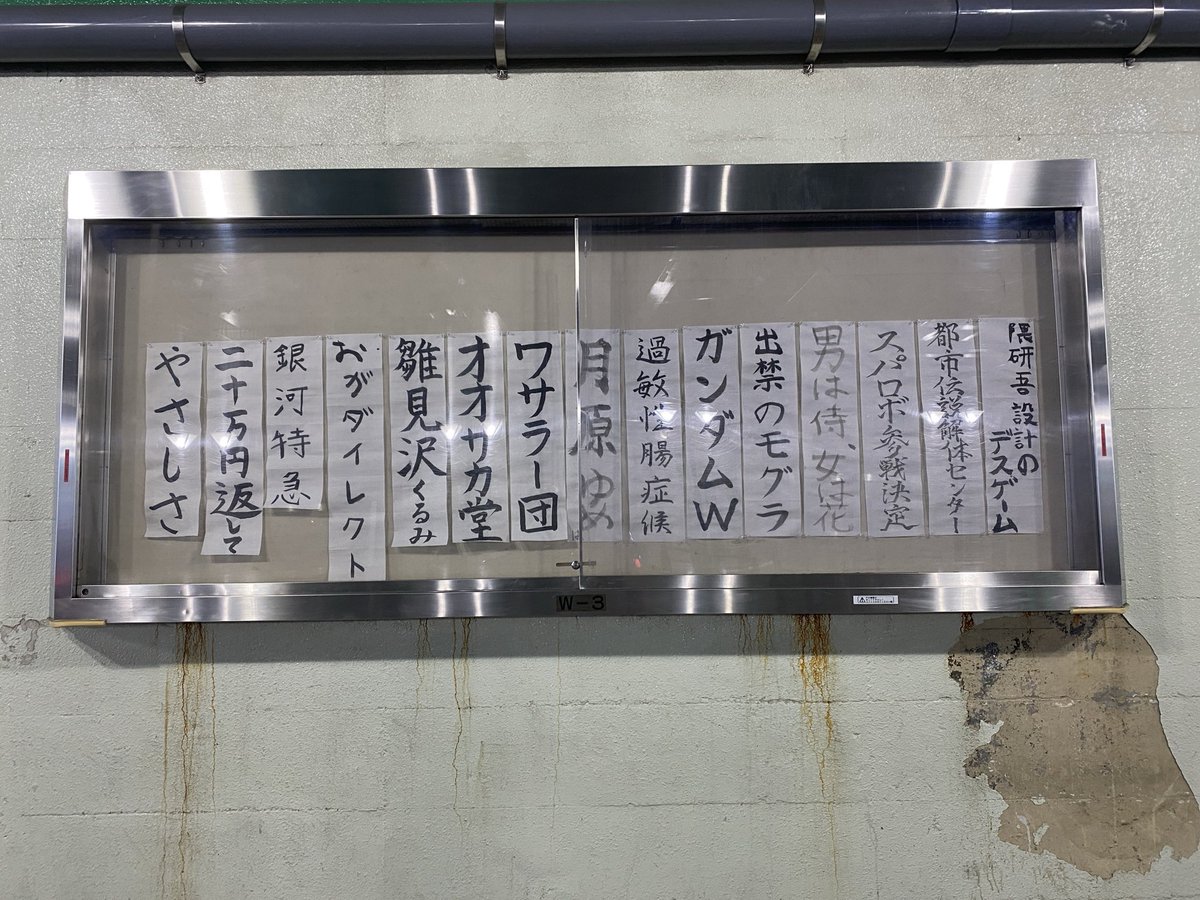 隈研吾設計の
デスゲーム
都市伝説解体センター
スパロボ参戦決定
男は侍、女は花
出禁のモグラ
ガンダムW
過敏性腸症候
月原ゆめ
ワサラー団
オオサカ堂
雛見沢くるみ
おがダイレクト
銀河特急
二十万円返して
やさしさ
W-3